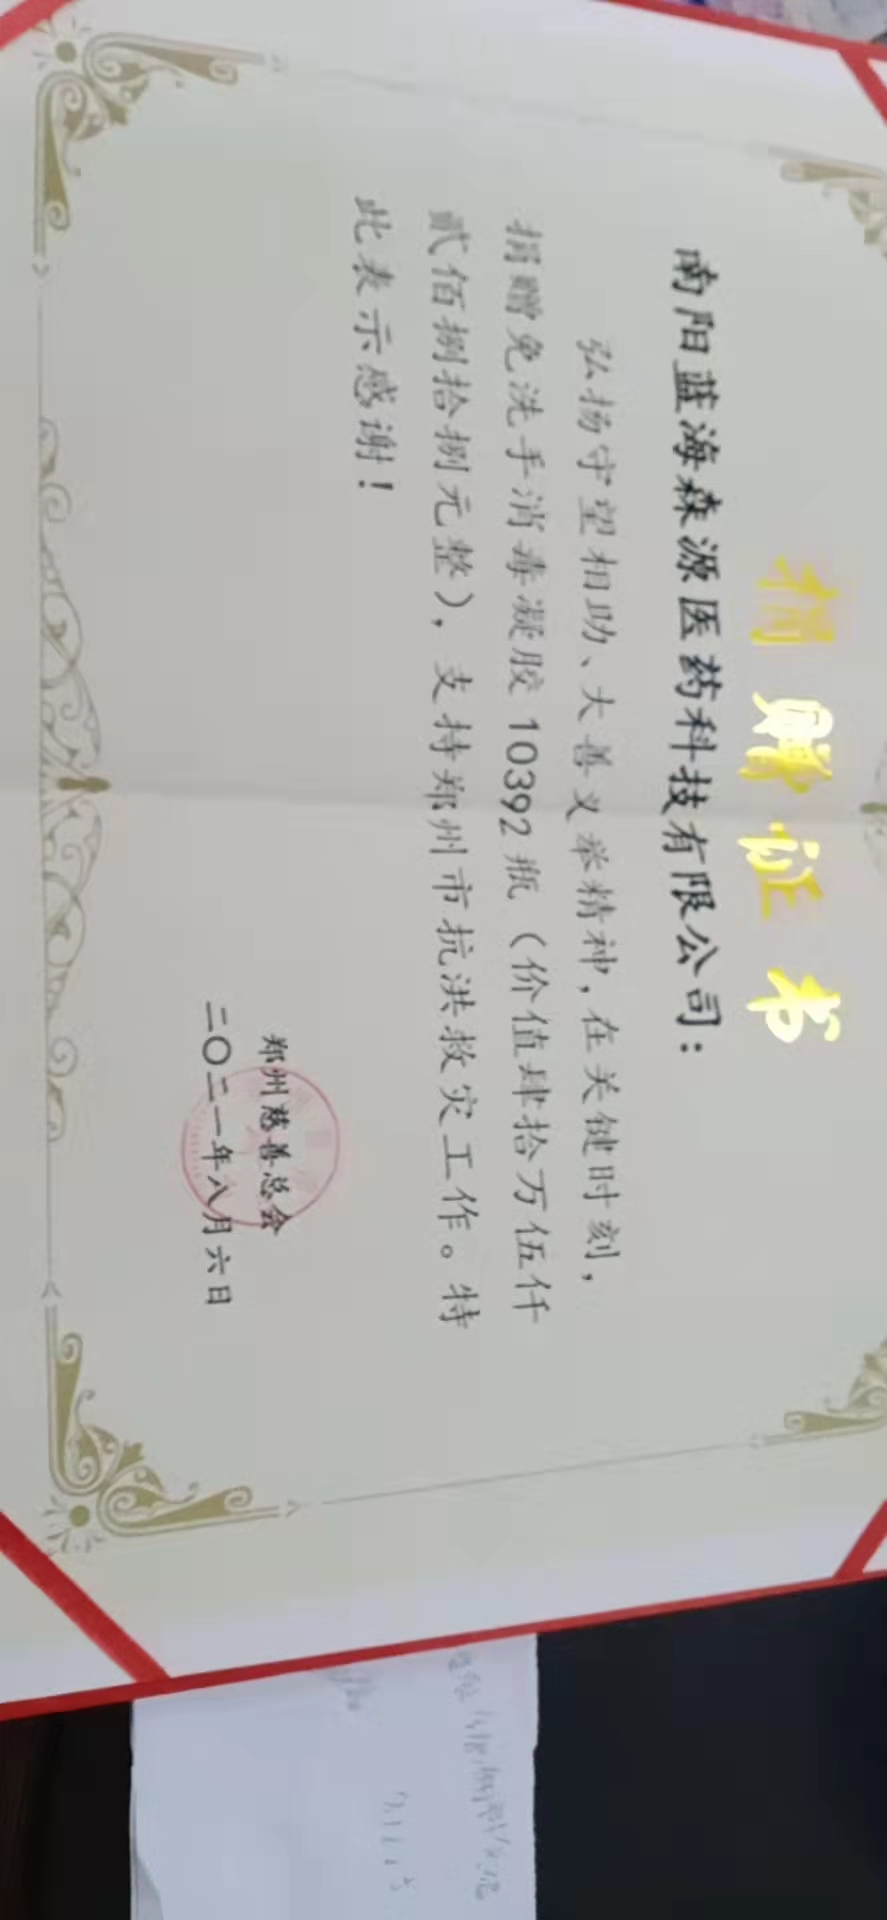 捐赠证书
南阳蓝海森源医药科技有限公司：
弘扬守望相助、大善义举精神，在关键时刻，
捐赠免洗手消毒凝胶10392瓶（价值肆拾万伍仟
贰佰捌拾捌元整），支持郑州市抗洪救灾工作。特
此表示感谢！
郑州慈善总会
二〇二一年八月六日